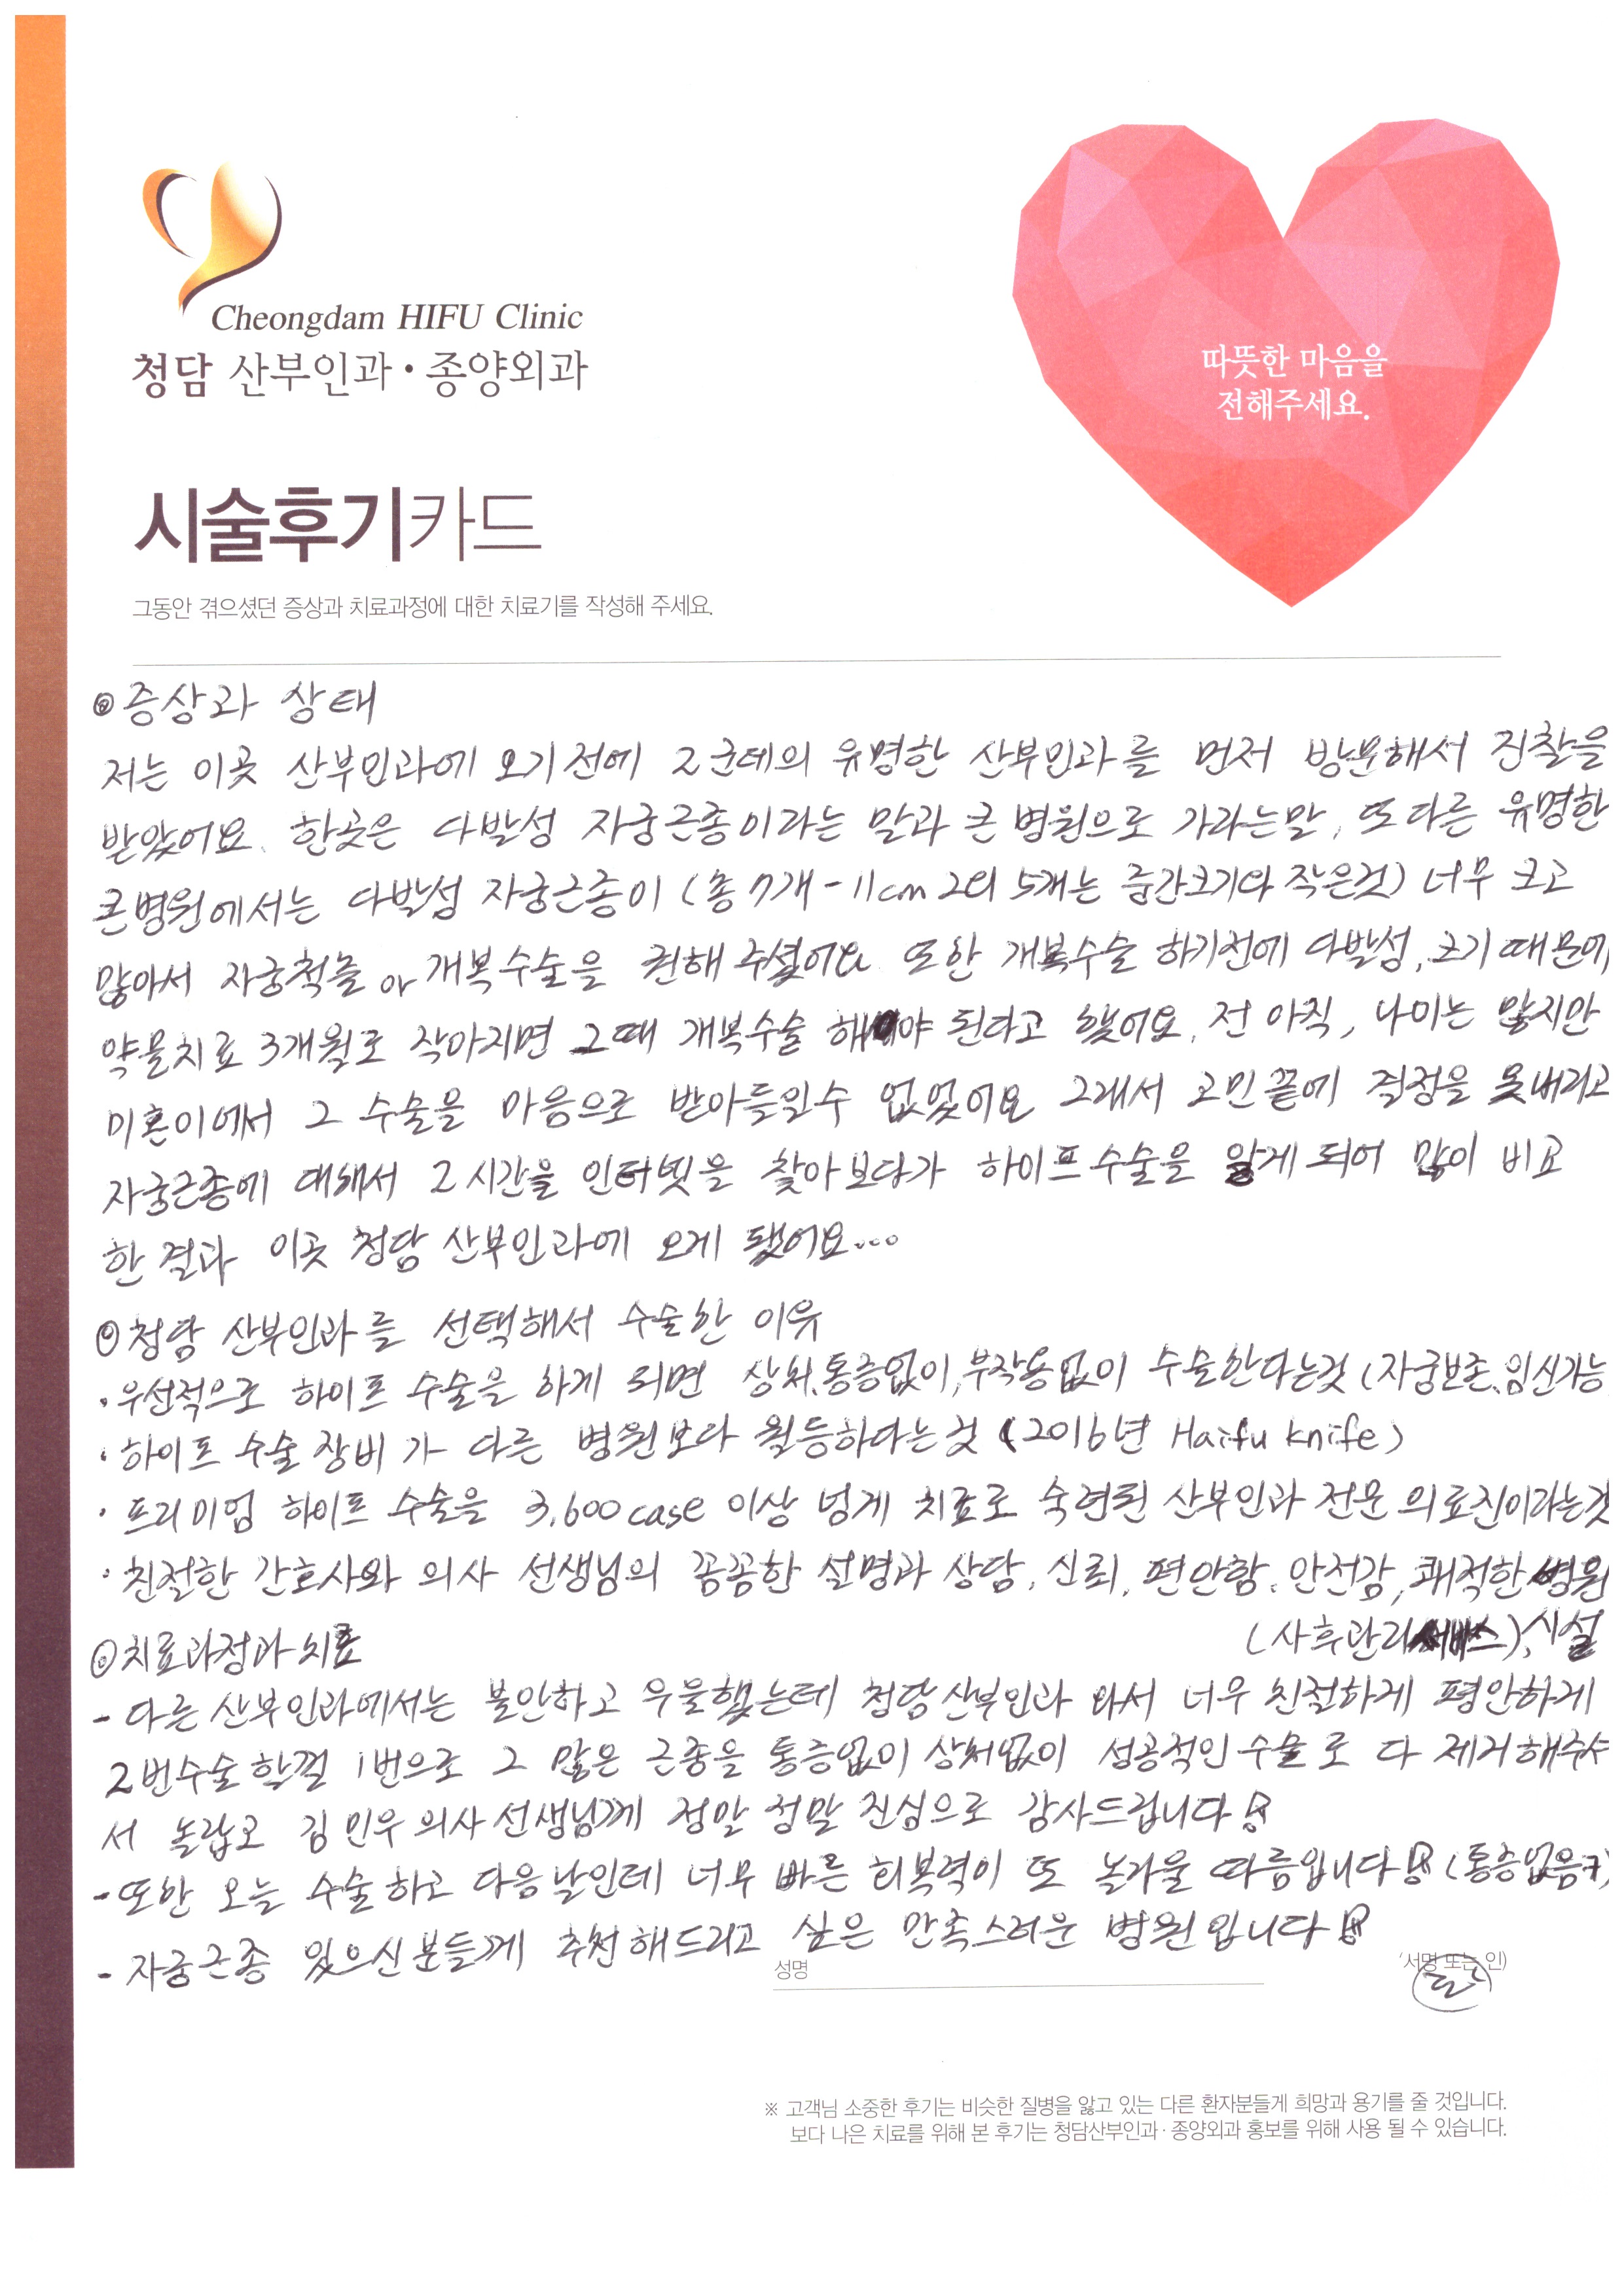 Cheongdam HIFU Clinic
청담 산부인과·종양외과
따뜻한 마음을
전해주세요.
시술후기카드
그동안 겪으셨던 증상과 치료과정에 대한 치료기를 작성해 주세요.
◎증상과 상태
저는 이곳 산부인과에 오기전에 2군데의 유명한 산부인과를 먼저 방문해서 진찰을
받았어요. 한곳은 다발성 자궁근종이라는 말과 큰 병원으로 가라는말, 또다른 유명한
큰병원에서는 다발성 자궁근종이 (총 7개 - 11cm 2외 5개는 중간크기와 작은것) 너무 크고
많아서 자궁척출 or 개복수술을 권해 주셨어요. 또한 개복수술 하기전에 다발성, 크기 때문에
약물치료 3개월로 작아지면 그때 개복수술 해야 된다고 했어요. 전 아직, 나이는 많지만
미혼이여서 그 수술을 마음으로 받아들일수 없었어요 그래서 고민끝에 결정을 못내리고
자궁근종에 대해서 2시간을 인터넷을 찾아보다가 하이프수술을 알게 되어 많이 비교
한 결과 이곳 청담 산부인과에 오게 됐어요...
◎청담 산부인과를 선택해서 수술한 이유
·우선적으로 하이프 수술을 하게 되면 상처,통증없이,부작용없이 수술한다는것 (자궁보존,임신가능
·하이프 수술 장비가 다른 병원보다 월등하다는것 (2016년 Haifu knife)
·프리미엄 하이프 수술을 3,600case 이상 넘게 치료로 숙련된 산부인과 전문 의료진이라는것
·친절한 간호사와 의사 선생님의 꼼꼼한 설명과 상담, 신뢰, 편안함, 안전감, 쾌적한 병원
(사후관리서비스),시설
◎치료과정과 치료
- 다른 산부인과에서는 불안하고 우울했는데 청담산부인과 와서 너무 친절하게 평안하게
2번수술할껄 1번으로 그 많은 근종을 통증없이 상처없이 성공적인 수술로 다 제거해주셔
서 놀랍고 김민우 의사선생님께 정말 정말 진심으로 감사드립니다
- 또한 오늘 수술하고 다음날인데 너무 빠른 회복력이 또 놀라울 따름입니다 (통증없음
- 자궁근종 있으신분들께 추천해드리고 싶은 만족스러운 병원입니다
성명
서명 또는 인)
※ 고객님 소중한 후기는 비슷한 질병을 앓고 있는 다른 환자분들게 희망과 용기를 줄 것입니다.
보다 나은 치료를 위해 본 후기는 청담산부인과·종양외과 홍보를 위해 사용 될 수 있습니다.